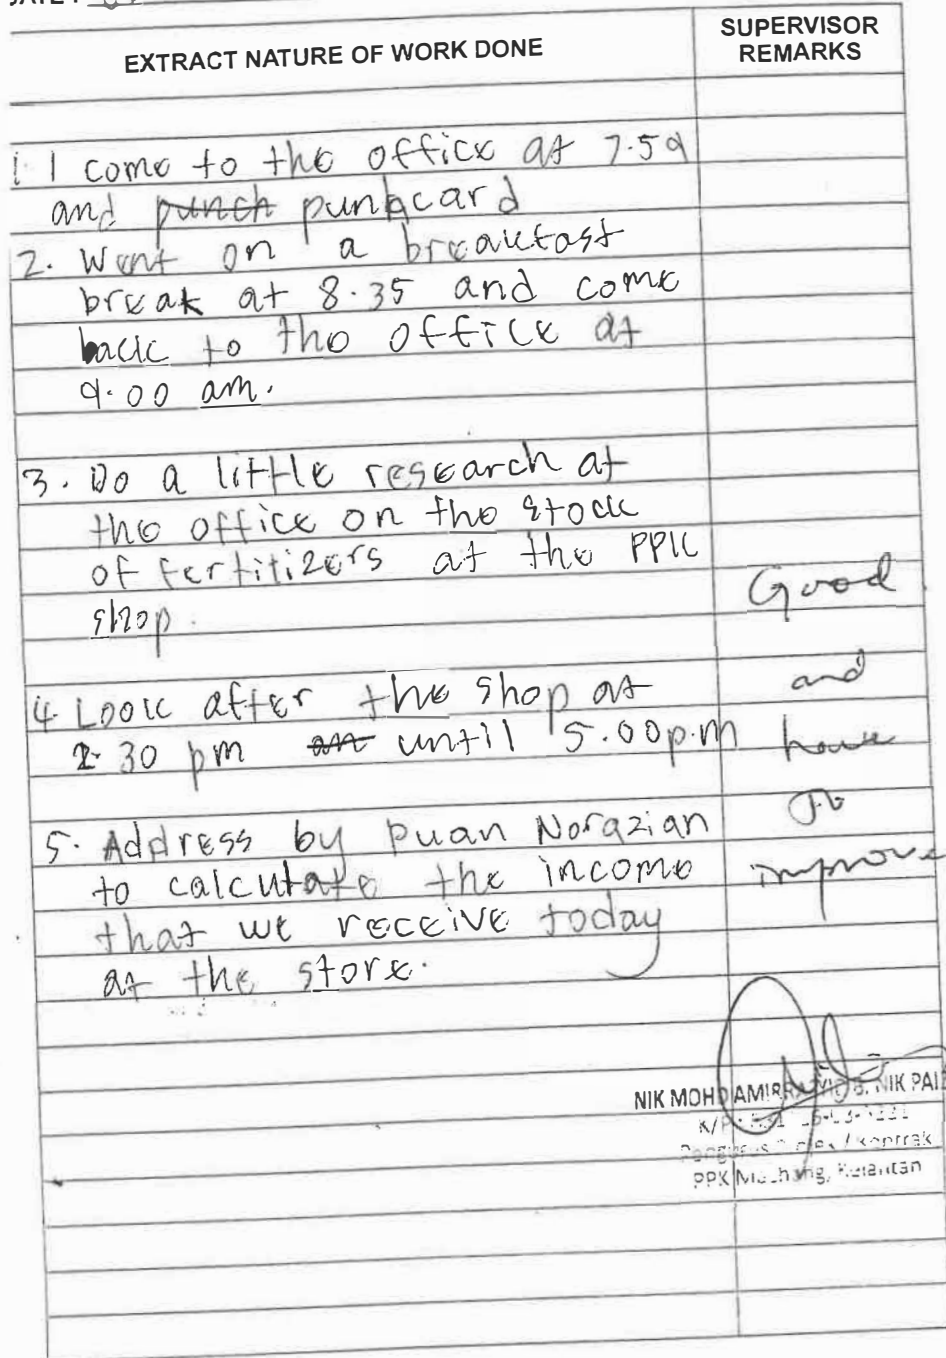 EXTRACT NATURE OF WORK DONE
SUPERVISOR
REMARKS
1. I come to the office at 7.59
and punch punhcard
2. Went on a breakfast
break at 8.35 and come
back to the office at
9.00 am.
3. Do a little research at
the office on the stock
of fertitizers at the PPK
shop.
4. Look after the shop at
2.30 pm an until 5.00p.m
5. Address by puan Norazian
to calcutate the income
that we receive today
at the store.
Good
and
have
to
improve
NIK MOHD AMIR B. NIK
K/P
PPK Machang, Kelantan